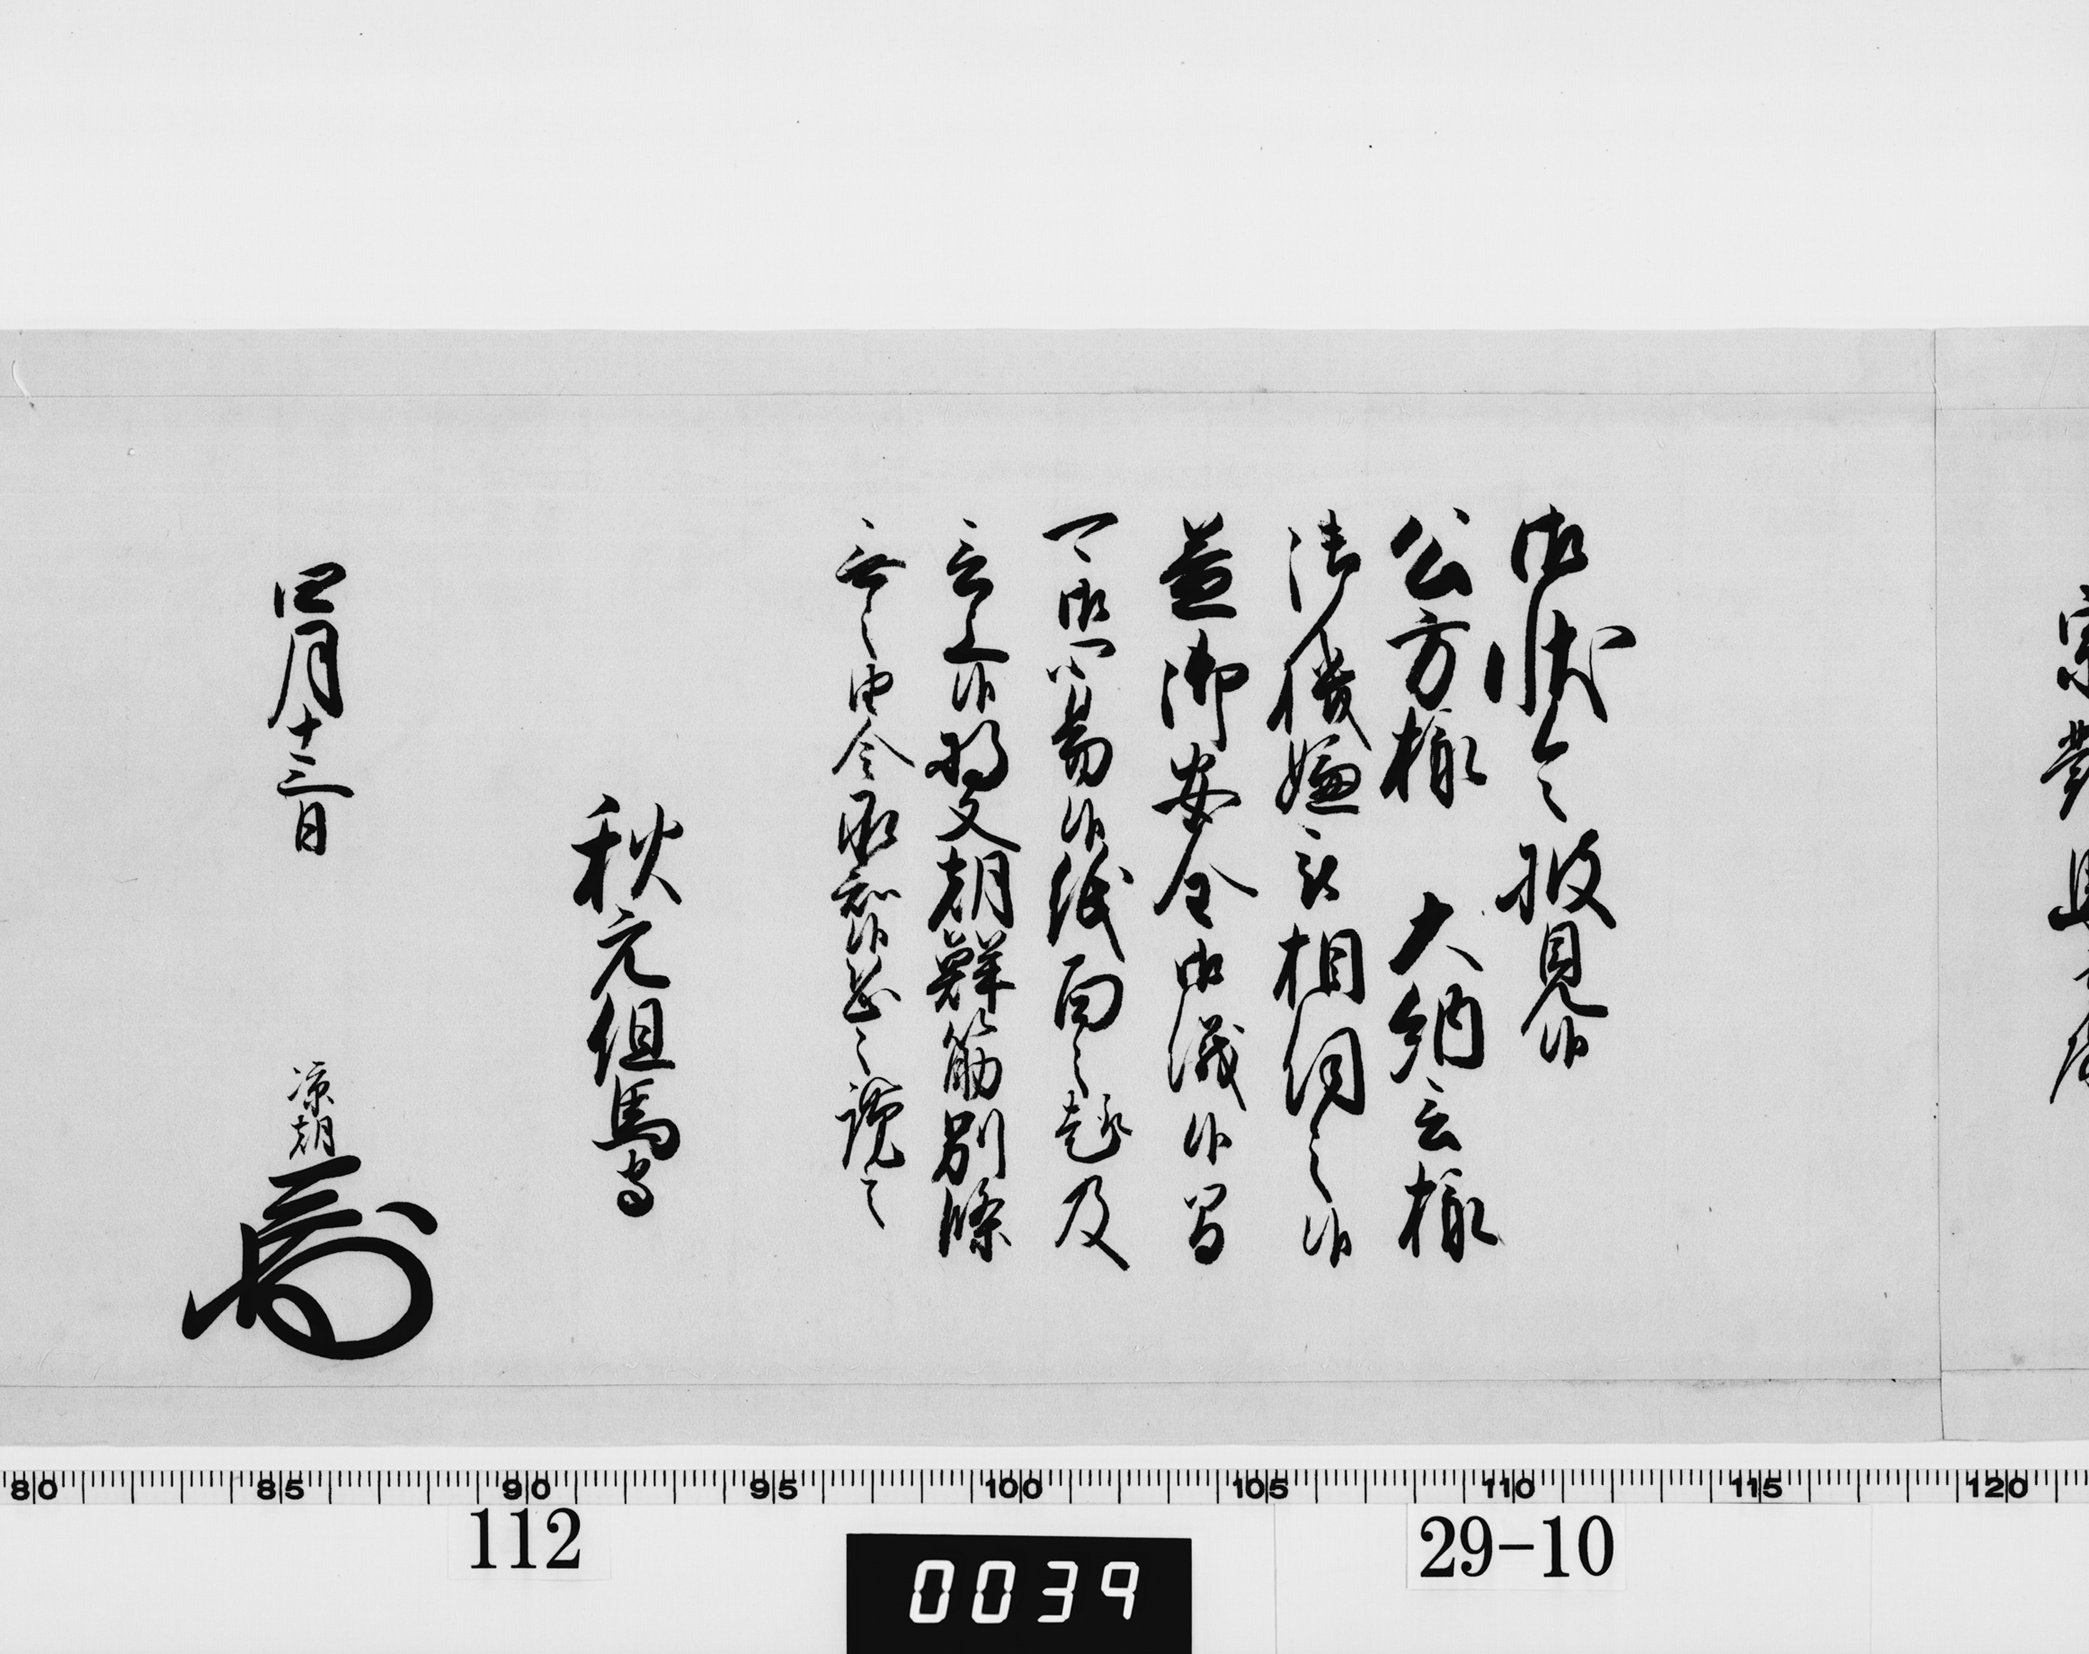 御状令披見候
公方様 大納言様
御機嫌被相伺之候
益御安全御儀候間
可御心易候紙面之趣及
言上候将又朝鮮筋別條
無之由令承知候恐々謹言
秋元但馬守
四月十三日 涼朝
80 85 90 95 100 105 110 115 120
112 29-10
0039